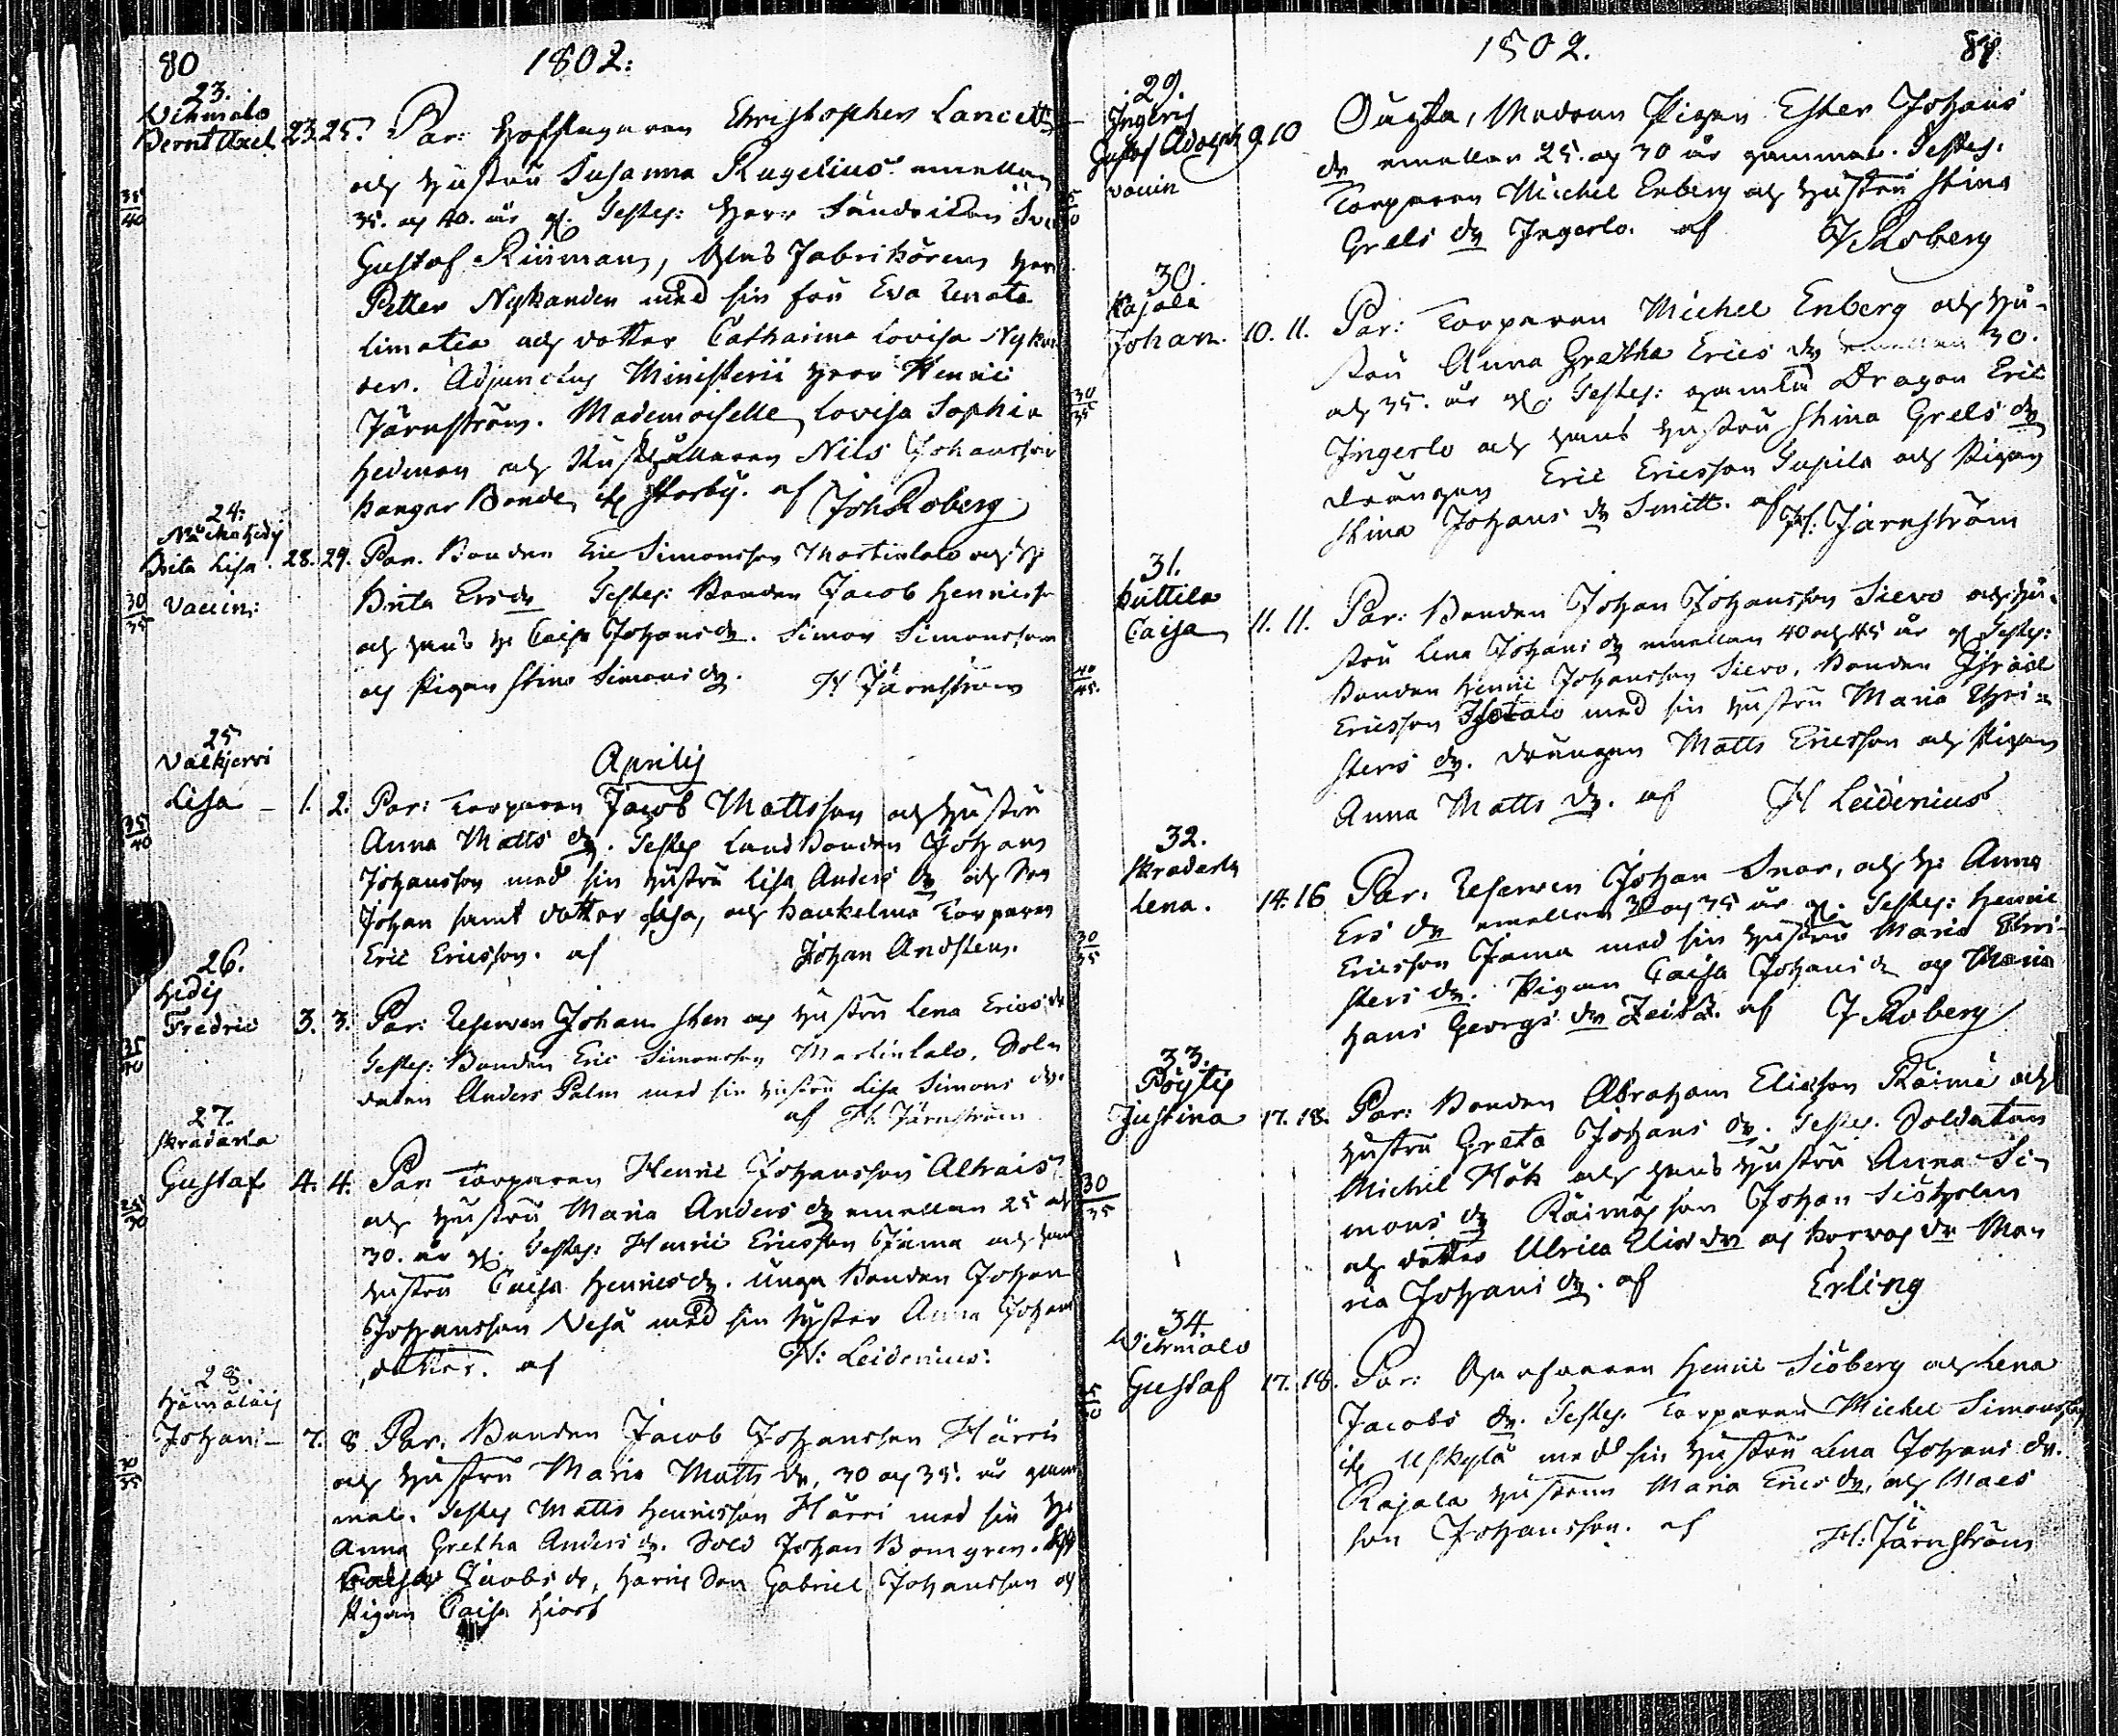 80
1802:
23.
Vehmalo
Bernt Axel 23. 25. Par: Hofslagaren Christopher Lancett
35/40
och Hustru Susanna Rugelius emellan
35. og 40. år gl. Testes: Herr
Gustaf Rinman, Fabrikören Herr
Petter Nykanden med sin fru Eva Renata
Limatia och dotter Catharina Lovisa
Adjunctus Ministerii Herr Henric
Järnström. Mademoiselle Lovisa Sophia
Hedman och Kusthållaren Nils Johansson
Bonde af JohRoberg
24:
Brita Lisa. 28. 29. Par. Bonden Eric Simonsson Martintalo och H:
30/35
Vaccin:
Brita Ersdr Testes: Bonden Jacob Henricss
och hans h. Caisa Johansdr. Simon Simonsson
och Pigan Stina Simonsdr. H Järnström
Aprilis
25
Valkjervi
Lisa – 1. 2. Par: Torparen Jacob Mattsson och Hustru
35/40
Anna Matts dr. Testes Landbonden Johan
Johansson med sin Hustru Lisa Anders dr och Son
Johan samt dotter Lisa, och Torparen
Eric Ericsson. af Johan Andsten.
26.
Hidis
Fredric 3. 3. Par: Reserven Johan Sten og Hustru Lena Erics dr
35/40
Testes: Bonden Eric Simonsson Martintalo. Sol-
daten Anders Palm med sin Hustru Lisa Simons dr.
af H. Järnström
27.
Skradarla
Gustaf 4. 4. Par Torparen Henric Johansson Alhais
25/30
och Hustru Maria Anders dr emellan 25 och
30. år gl. Testes: Henric Ericsson Jama och hans
Hustru Caisa Henricsdr. Unga Bonden Johan
Johansson Vesa med sin Syster Anna Johans
dotter. af H: Leidenius.
28.
Hämäläis
Johan – 7. 8. Par. Bonden Jacob Johansson Härri
30/35
och Hustru Maria Matts dr, 30 og 35. år gam
mal. Testes Matts Henricsson Härri med sin H:
Anna Gretha Anders dr. Sold Johan Bomgren.
Jacobs dr, Harris Son Gabriel Johansson och
Pigan Caisa Hiort
1802.
81.
29.
Ingeris
Gustaf Adolph 9. 10
vaccin
Ougta, Modren Pigan Ester Johans
dr emellan 25. og 30 år gammal. Testes:
Torparen Michel Enberg och Hustru Stina
Grels dr Ingerlo. af J Roberg
30.
Rajala
Johan. 10. 11. Par: Torparen Michel Enberg och Hu-
stru Anna Gretha Erics dr emellan 30.
30/35
och 35. år gl. Testes: gamla Dragon Eric
Ingerlo och hans Hustru Stina Grels dr
drängen Eric Ericsson Supila och Pigan
Stina Johans dr Smitt. af H: Järnström
31.
Puttila
Caisa 11. 11. Par: Bonden Johan Johansson Sievo och Hu-
stru Lena Johans dr emellan 40 och 45 år gl Testes:
40/45.
Bonden Henric Johansson Sievo, Bonden Israel
Ericsson Isotalo med sin Hustru Maria Chri-
sters dr. drängen Matts Ericsson och Pigan
Anna Matts dr. af H Leidenius
32.
Skradarla
Lena. 14. 16 Par. Reserven Johan Snar, och H: Anna
30/35
Ers dr emellan 30 og 35 år gl. Testes: Henric
Ericsson Jama med sin Hustru Maria Chri-
sters dr. Pigan Caisa Johans dr og Maria
hans Georgs dr Zeitz. af J Roberg
33.
Pöytis
Justina 17. 18. Par: Bonden Abraham Eliasson Raimä och
30/35
Hustru Greta Johans dr. Testes. Soldaten
Michel Hök och hans Hustru Anna Si-
mons dr Raimas son Johan Siöholm
och dotter Ulrica Elias dr og dr Ma-
ria Johans dr. af Erling
34.
Vehmalo
Gustaf 17. 18. Par: Henric Siöberg och Lena
Jacobs dr. Testes. Torparen Michel Simonsson
Uskyla med sin Hustru Lena Johans dr.
Rajala Hustrun Maria Erics dr, och Maes
son Johansson. af H: Järnström